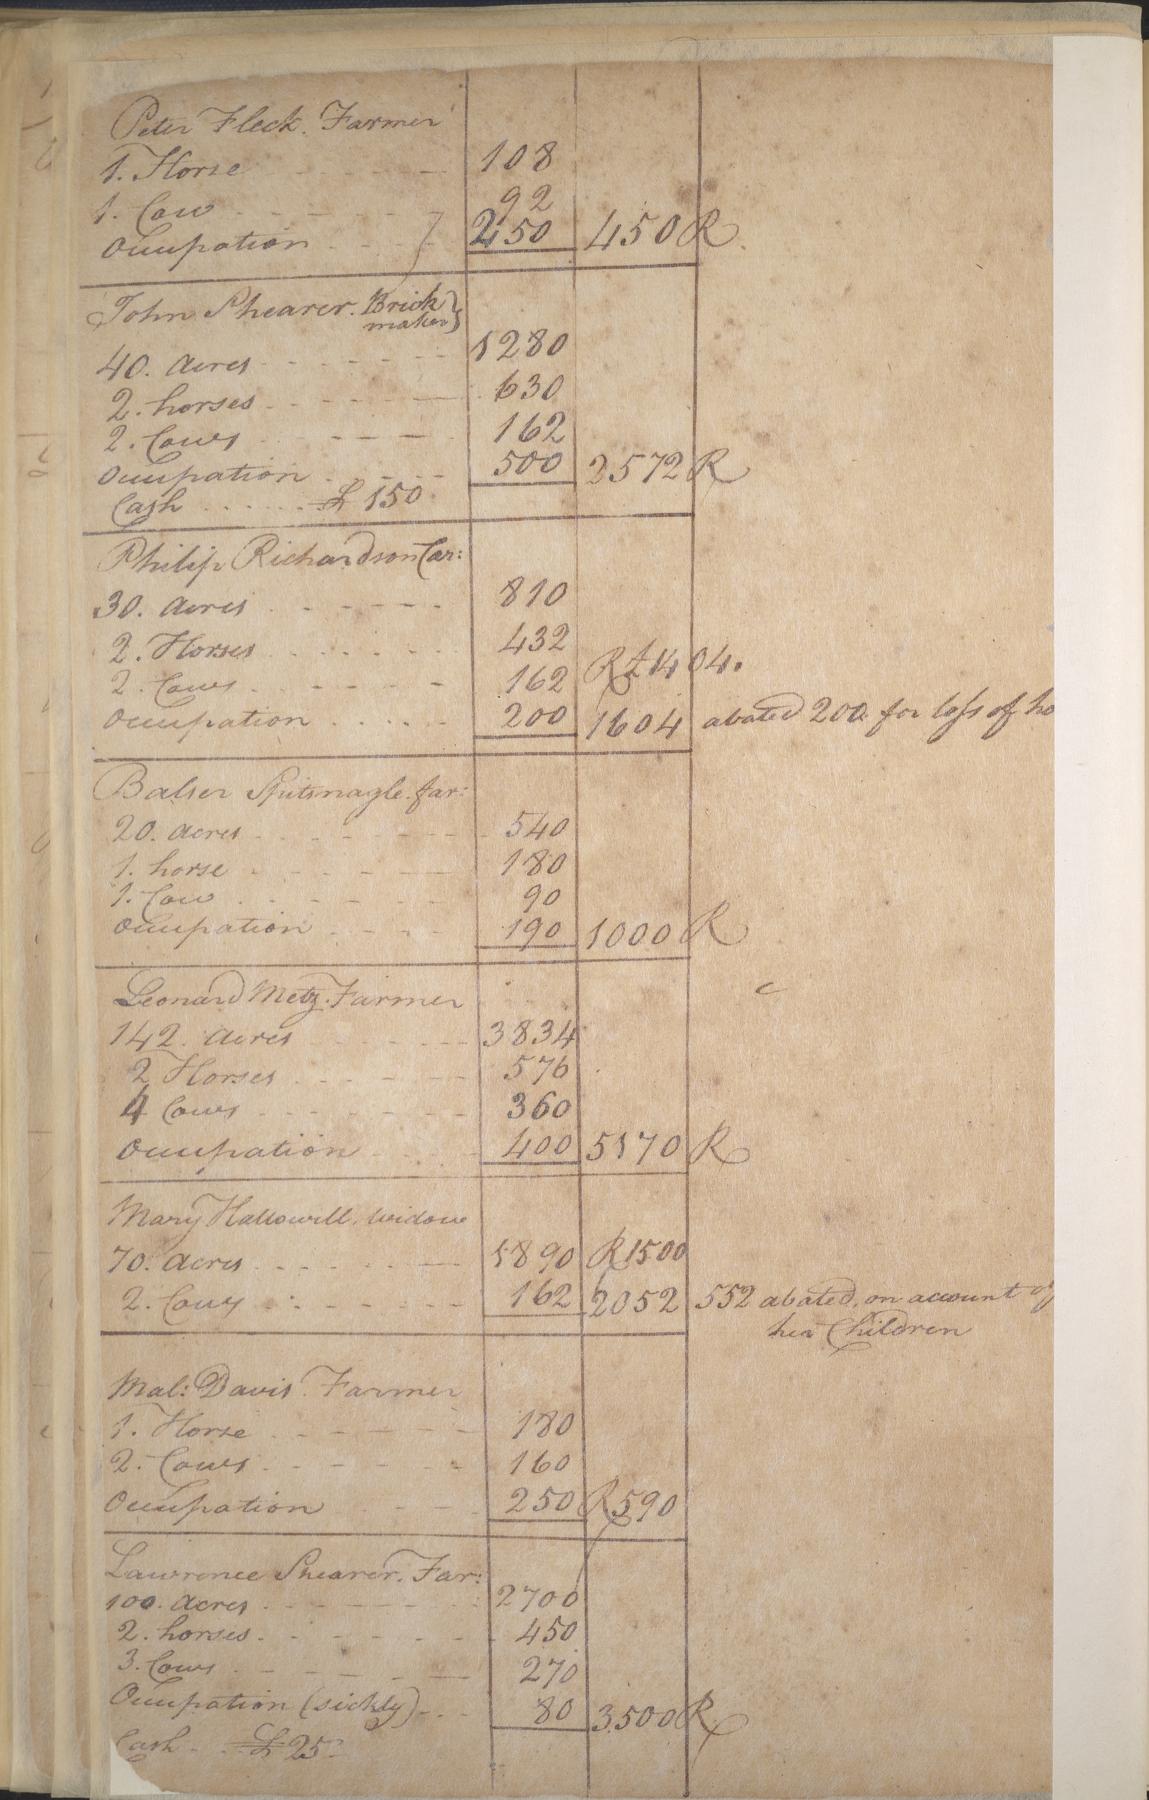 Peter Fleck. Farmer
1. Horse 108
1. Cow 92
Occupation 250 450 R
John Shearer. Brick
maker
40. acres 1280
2. horses 630
2. Cows 162
Occupation 500 2572 R
Cash £ 150
Philip Richardson Car:
30. acres 810
2. Horses 432
R £ 1404.
2. Cows 162
Occupation 200 1604 abated 200. for loss of ho
Balser Spitsnagle. far:
20. acres 540
1. horse 180
1. Cow 90
Occupation 190 1000 R
Leonard Metz. Farmer
142. acres 3834
2 Horses 576
4 Cows 360
Occupation 400 5170 R
Mary Hallowell. Widow
70. acres 1890 R 1500
2. Cows 162 2052 552 abated, on account of
her Children
Mal: Davis. Farmer
1. Horse 180
2. Cows 160
Occupation 250 R 590
Lawrence Shearer. Far:
100. acres 2700
2. horses 450
3. Cows 270
Occupation (sickly) 80 3500 R
Cash £ 25